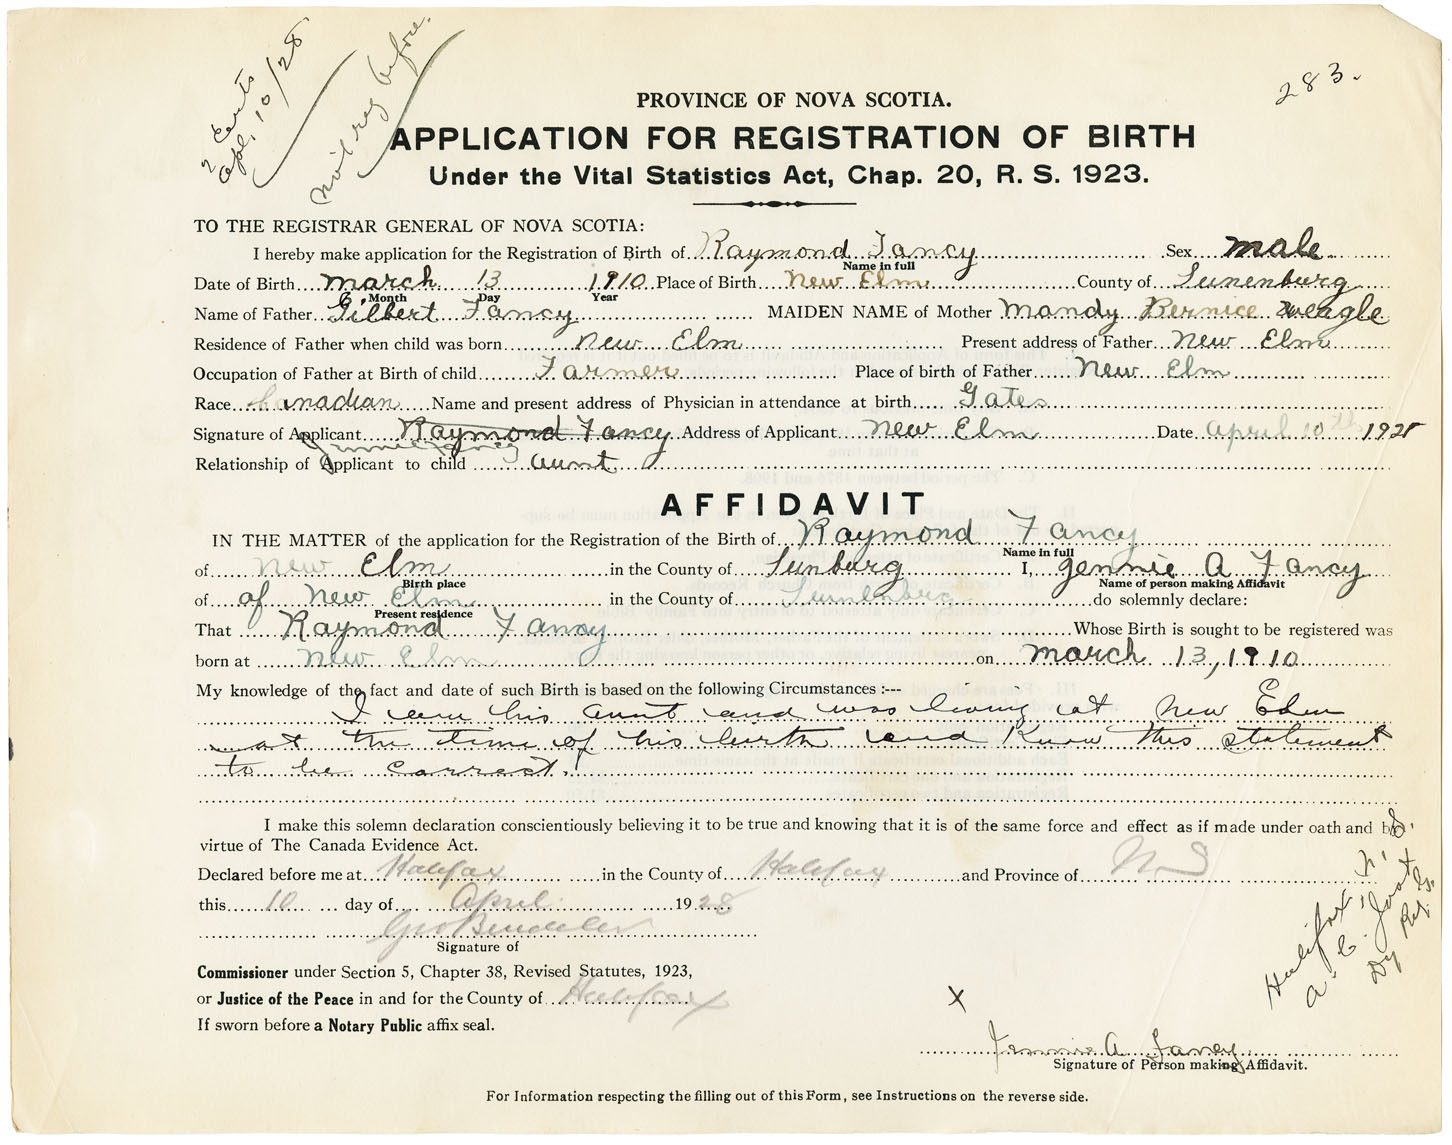 283.
2 Certs
Apl. 10/28
not reg before.
PROVINCE OF NOVA SCOTIA.
APPLICATION FOR REGISTRATION OF BIRTH
Under the Vital Statistics Act, Chap. 20, R. S. 1923.
TO THE REGISTRAR GENERAL OF NOVA SCOTIA:
I hereby make application for the Registration of Birth of Raymond Fancy Sex male
Name in full
Date of Birth March 13 1910 Place of Birth New Elm County of Lunenburg
Month Day Year
Name of Father Gilbert Fancy MAIDEN NAME of Mother Mandy Bernice Weagle
Residence of Father when child was born New Elm Present address of Father New Elm
Occupation of Father at Birth of child Farmer Place of birth of Father New Elm
Race Canadian Name and present address of Physician in attendance at birth Gates
Signature of Applicant Raymond Fancy Address of Applicant New Elm Date April 10th 1928
Jennie Fancy
Relationship of Applicant to child aunt
AFFIDAVIT
IN THE MATTER of the application for the Registration of the Birth of Raymond Fancy
Name in full
of New Elm in the County of Lunburg I, Jennie A Fancy
Birth place Name of person making Affidavit
of of New Elm in the County of Lunenburg do solemnly declare:
Present residence
That Raymond Fancy Whose Birth is sought to be registered was
born at New Elm on March 13, 1910
My knowledge of the fact and date of such Birth is based on the following Circumstances :---
I am his aunt and was living at New Elm
at the time of his birth and know this statement
to be correct.
I make this solemn declaration conscientiously believing it to be true and knowing that it is of the same force and effect as if made under oath and by
virtue of The Canada Evidence Act.
Declared before me at Halifax in the County of Halifax and Province of NS
this 10 day of April 1928
Geo
Signature of
Commissioner under Section 5, Chapter 38, Revised Statutes, 1923,
or Justice of the Peace in and for the County of Halifax
If sworn before a Notary Public affix seal.
Halifax N.S.
A. C. Jost
Dy Reg. G.
X
Jennie A. Fancy
Signature of Person making Affidavit.
For Information respecting the filling out of this Form, see Instructions on the reverse side.